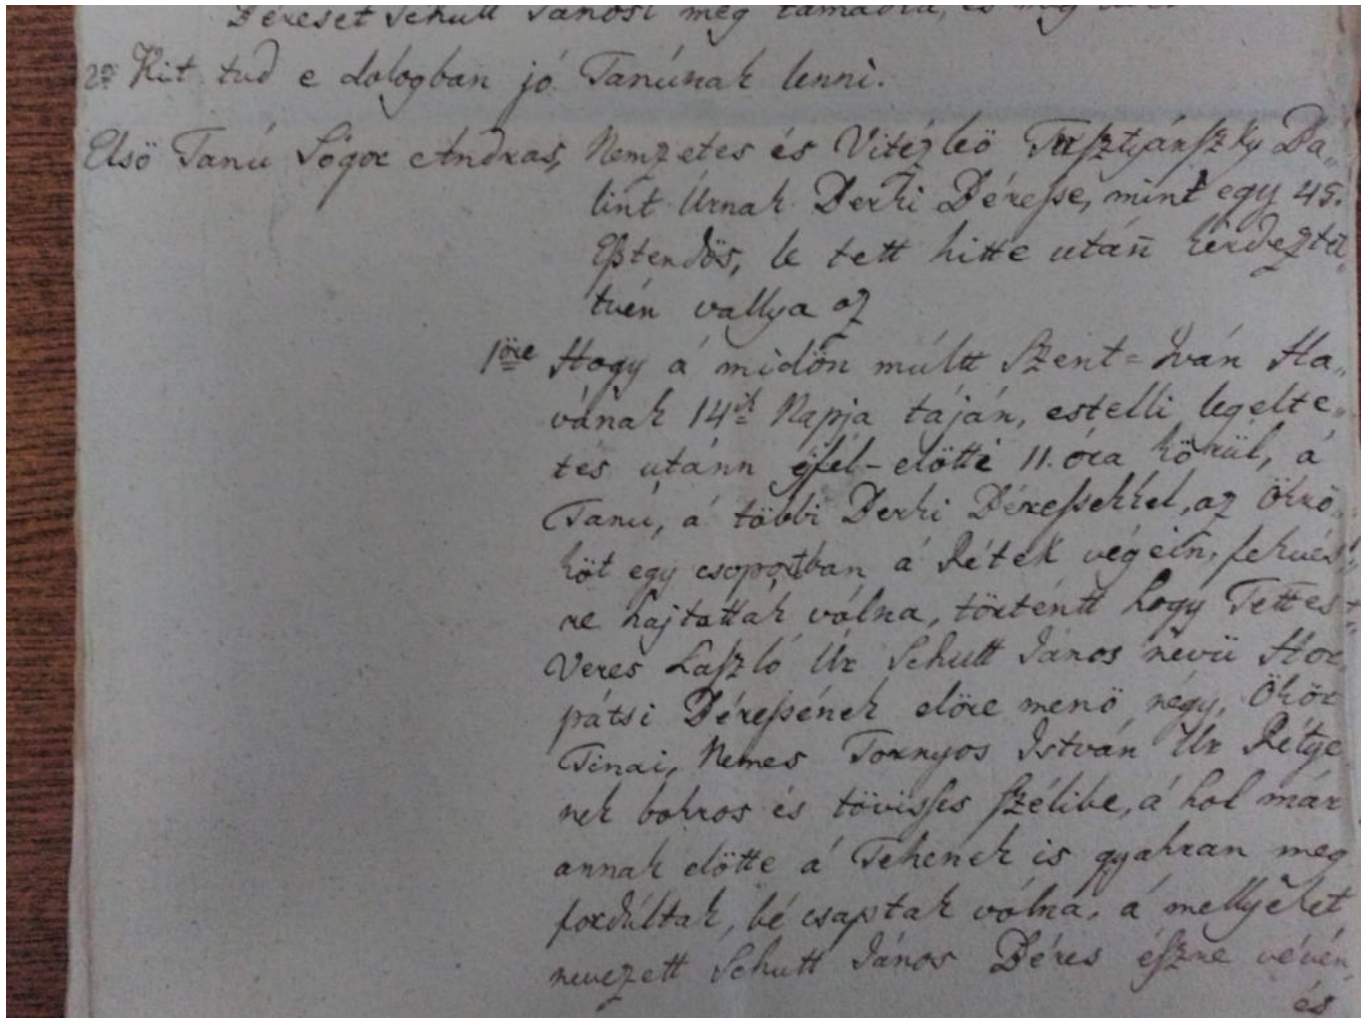 Béreset Schutt Jánost meg támadta, és meg
2o Kit tud e dologban jó Tanúnak lenni.
Elsö Tanú Sógor Andras, Nemzetes és Vitézlö Trsztyánszky Bá„
lint Úrnak Derki Béresse, mint egy 45.
Esztendös, le tett hitte utánn kérdeztet„
tvén vallya az
1öre Hogy á midön múltt Szent=Iván Ha„
vának 14ik Napja táján, estelli legelte„
tés utánn éjfél-elötti 11. óra körül, á
Tanú, á többi Derki Béressekkel, az Ökrö„
köt egy csoportban á Rétek végeín, fekvés„
re hajtották vólna, történtt hogy Tettes
Veres László Úr Schutt János nevü Hor„
pátsi Béressének elöre menö négy, Ökör
Tinai, Nemes Tornyos István Úr Rétjé
nek bokros és tövisses szélibe, á hol már
annak elötte á Tehenek is gyakran meg
fordúltak, bé csaptak vólna, á mellyeket
nevezett Schutt János Béres észre vévén,
és